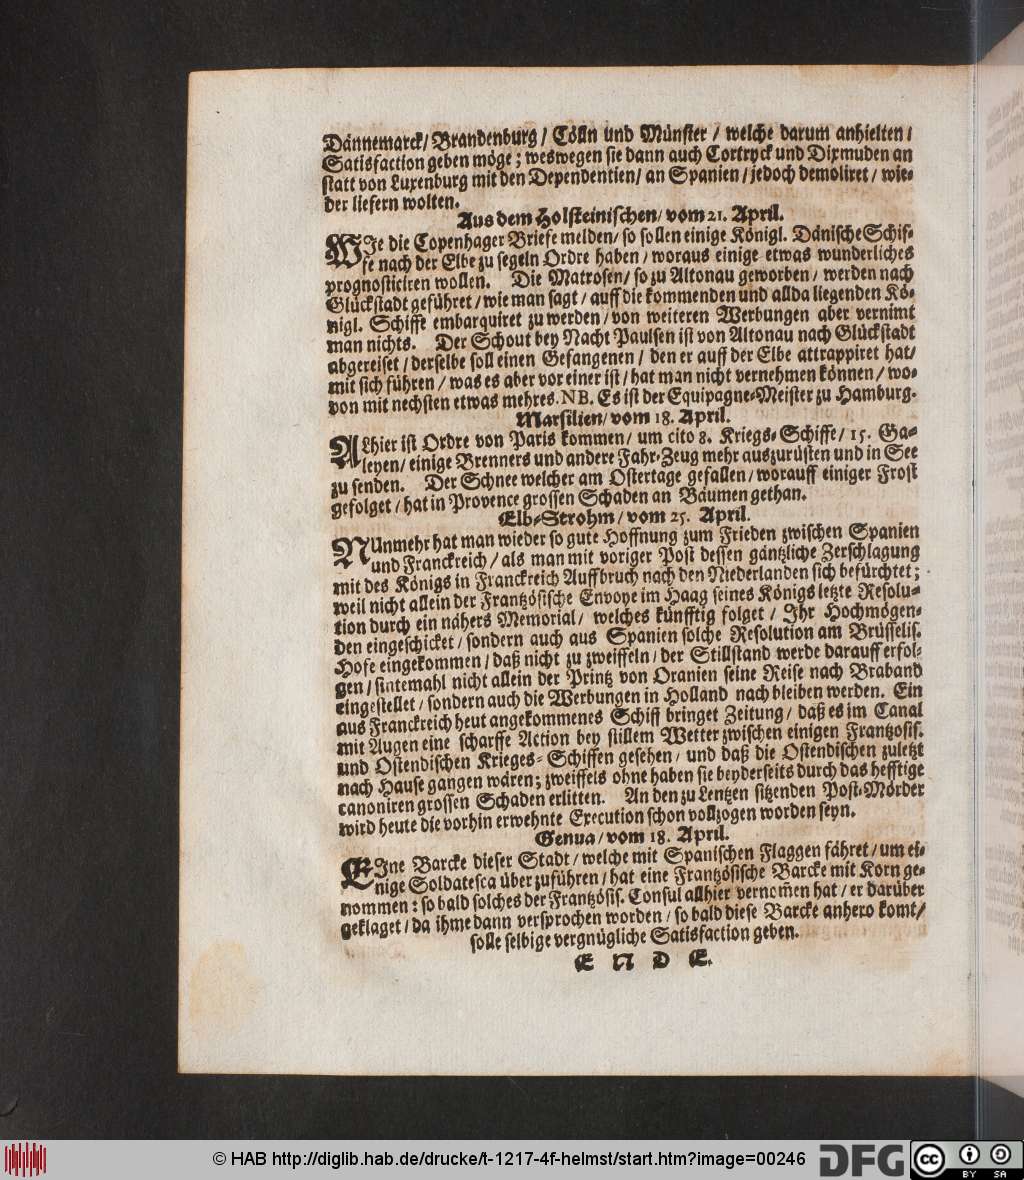 Dännemarck/ Brandenburg/ Cölln und Münster / welche darum anhielten /
Satisfaction geben möge ; weswegen sie dann auch Cortryck und Dixmuden an
statt von Luxenburg mit den Dependentien/ an Spanien / jedoch demoliret / wie-
der liefern wolten.
Aus dem Holsteinischen/ vom 21. April.
WIe die Copenhager Briefe melden/ so sollen einige Königl. Dänische Schif-
fe nach der Elbe zu segeln Ordre haben / woraus einige etwas wunderliches
prognosticiren wollen. Die Matrosen/ so zu Altonau geworben / werden nach
Glückstadt geführet / wie man sagt / auff die kommenden und allda liegenden Kö-
nigl. Schiffe embarquiret zu werden / von weiteren Werbungen aber vernimt
man nichts. Der Schout bey Nacht Paulsen ist von Altonau nach Glückstadt
abgereiset / derselbe soll einen Gefangenen / den er auff der Elbe attrappiret hat/
mit sich führen / was es aber vor einer ist / hat man nicht vernehmen können / wo-
von mit nechsten etwas mehres. NB. Es ist der Equipagne-Meister zu Hamburg.
Marsilien/ vom 18. April.
ALhier ist Ordre von Paris kommen/ um cito 8. Kriegs-Schiffe/ 15. Ga-
leyen/ einige Brenners und andere Fahr-Zeug mehr auszurüsten und in See
zu senden. Der Schnee welcher am Ostertage gefallen / worauff einiger Frost
gefolget / hat in Provence grossen Schaden an Bäumen gethan.
Elb-Strohm / vom 25. April.
NUnmehr hat man wieder so gute Hoffnung zum Frieden zwischen Spanien
und Franckreich / als man mit voriger Post dessen gäntzliche Zerschlagung
mit des Königs in Franckreich Auffbruch nach den Niederlanden sich befürchtet ;
weil nicht allein der Frantzösische Envoye im Haag seines Königs letzte Resolu-
tion durch ein nähers Memorial / welches künfftig folget / Ihr Hochmögen-
den eingeschicket / sondern auch aus Spanien solche Resolution am Brüsselis.
Hofe eingekommen / daß nicht zu zweiffeln / der Stillstand werde darauff erfol-
gen / sintemahl nicht allein der Printz von Oranien seine Reise nach Braband
eingestellet / sondern auch die Werbungen in Holland nach bleiben werden. Ein
aus Franckreich heut angekommenes Schiff bringet Zeitung / daß es im Canal
mit Augen eine scharffe Action bey stillem Wetter zwischen einigen Frantzosis.
und Ostendischen Krieges-Schiffen gesehen / und daß die Ostendischen zuletzt
nach Hause gangen wären ; zweiffels ohne haben sie beyderseits durch das hefftige
canoniren grossen Schaden erlitten. An den zu Lentzen sitzenden Post-Mörder
wird heute die vorhin erwehnte Execution schon vollzogen worden seyn.
Genua / vom 18. April.
EIne Barcke dieser Stadt / welche mit Spanischen Flaggen fähret / um ei-
nige Soldatesca über zuführen / hat eine Frantzösische Barcke mit Korn ge-
nommen : so bald solches der Frantzösis. Consul allhier vernom̃en hat / er darüber
geklaget / da ihme dann versprochen worden / so bald diese Barcke anhero komt/
solle selbige vergnügliche Satisfaction geben.
E N D E.
© HAB http://diglib.hab.de/drucke/t-1217-4f-helmst/start.htm?image=00246
DFG
cc BY SA